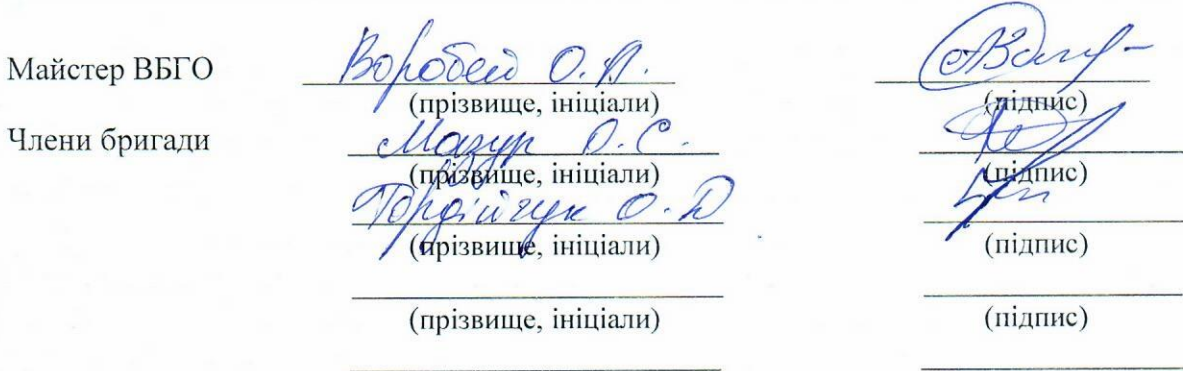 Майстер ВБГО Воробей О.В.
(прізвище, ініціали) (підпис)
Члени бригади Мазур О.С.
(прізвище, ініціали) (підпис)
Гордійчук О.Д
(прізвище, ініціали) (підпис)
(прізвище, ініціали) (підпис)